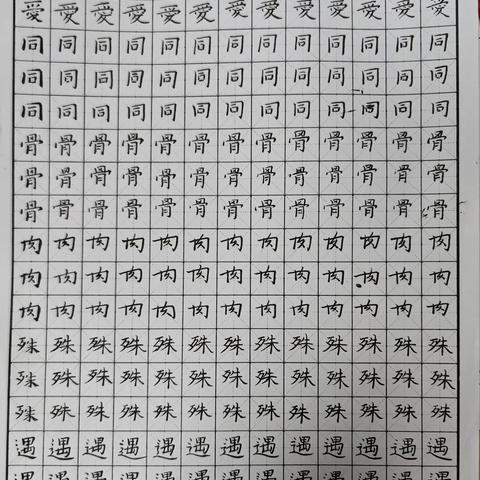 愛愛愛愛愛愛愛愛愛愛愛愛愛
同同同同同同同同同同同同同
同同同同同同同同同同同同同
同同同同同同同同同同同同同
骨骨骨骨骨骨骨骨骨骨骨骨骨
骨骨骨骨骨骨骨骨骨骨骨骨骨
骨骨骨骨骨骨骨骨骨骨骨骨骨
肉肉肉肉肉肉肉肉肉肉肉肉肉
肉肉肉肉肉肉肉肉肉肉肉肉肉
肉肉肉肉肉肉肉肉肉肉肉肉肉
殊殊殊殊殊殊殊殊殊殊殊殊殊
殊殊殊殊殊殊殊殊殊殊殊殊殊
殊殊殊殊殊殊殊殊殊殊殊殊殊
遇遇遇遇遇遇遇遇遇遇遇遇遇